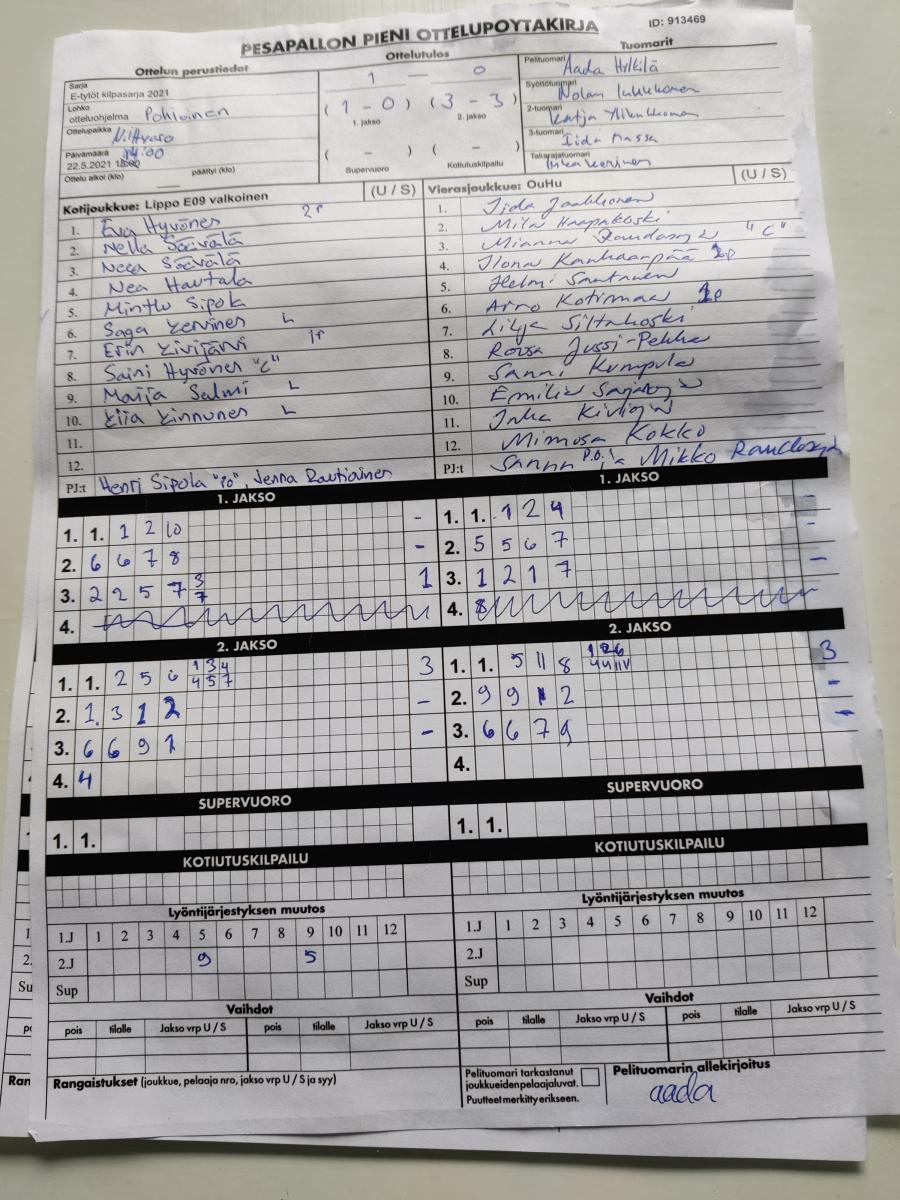 PESÄPALLON PIENI OTTELUPÖYTÄKIRJA
ID: 913469
Ottelun perustiedot
Sarja
E-tytöt kilpasarja 2021
Lohko
otteluohjelma Pohjoinen
Ottelupaikka
Päivämäärä 14:00
22.5.2021
Ottelu alkoi (klo) päättyi (klo)
Ottelutulos
1 — 0
( 1 - 0 ) ( 3 - 3 )
1. jakso 2. jakso
( - ) ( - )
Supervuoro Kotiutuskilpailu
Tuomarit
Pelituomari Aada Hilkilä
Syöttötuomari Nolan
2-tuomari Katja
3-tuomari Iida Massa
Takarajatuomari
Kotijoukkue: Lippo E09 valkoinen (U / S)
1. Eva Hyvönen 2p
2. Nella Säävälä
3. Neea Säävälä
4. Nea Hautala
5. Minttu Sipola
6. Saga L
7. Erin 1p
8. Saini Hyvönen "C"
9. Marija Salmi L
10. L
11.
12.
PJ:t Henri Sipola "PO", Jenna Rautiainen
Vierasjoukkue: OuHu (U / S)
1. Iida Jaakkonen
2. Mila Haapakoski
3. Mianna "C"
4. Ilona Kanhaanpää
5. Helmi
6. Kotimaa
7. Lilja Siltakoski
8. Roosa Jussi-Pekka
9. Sanni Kumpula
10. Emilia
11. Inka
12. Mimosa Kokko
PJ:t Sanna P.O. ja Mikko
1. JAKSO
1. 1. 1 2 10 -
2. 6 6 7 8 -
3. 2 2 5 7 3 7 1
4.
1. JAKSO
1. 1. 1 2 4 -
2. 5 5 6 7 -
3. 1 2 1 7 -
4. 8
2. JAKSO
1. 1. 2 5 6 1 3 4 3
4 5 7
2. 1. 3 1 2 -
3. 6 6 9 1 -
4. 4
2. JAKSO
1. 1. 5 11 8 1 2 6 3
2. 9 9 1 2 -
3. 6 6 7 9 -
4.
SUPERVUORO
1. 1.
SUPERVUORO
1. 1.
KOTIUTUSKILPAILU
KOTIUTUSKILPAILU
Lyöntijärjestyksen muutos
1.J 1 2 3 4 5 6 7 8 9 10 11 12
2.J 9 5
Sup
Lyöntijärjestyksen muutos
1.J 1 2 3 4 5 6 7 8 9 10 11 12
2.J
Sup
Vaihdot
pois tilalle Jakso vrp U / S pois tilalle Jakso vrp U / S
Vaihdot
pois tilalle Jakso vrp U / S pois tilalle Jakso vrp U / S
Rangaistukset (joukkue, pelaaja nro, jakso vrp U / S ja syy)
Pelituomari tarkastanut
joukkueiden pelaajaluvat.
Puutteet merkitty erikseen.
Pelituomarin allekirjoitus
aada